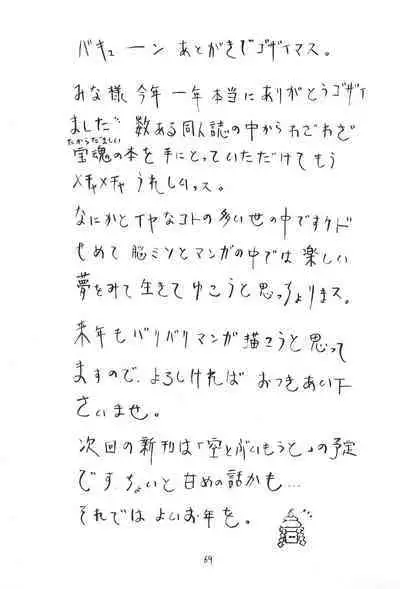 バキューン あとがきでゴザイマス。
みな様 今年 一年 本当に ありがとうゴザイ
ました 数ある同人誌の中から わざわざ
たからだましい
宝魂の本を手にとっていただけてもう
メチャメチャ うれしいっス。
なにかとイヤなコトの多い世の中ですケド
せめて 脳ミソとマンガの中では 楽しい
夢をみて 生きて ゆこうと思っちょりまス。
来年もバリバリマンガ描こうと思って
ますので、よろしければ おつきあい下
さいませ。
次回の新刊は「空とぶいもうと」の予定
です。ちょいと 甘めの話かも…
それでは よいお年を。
69